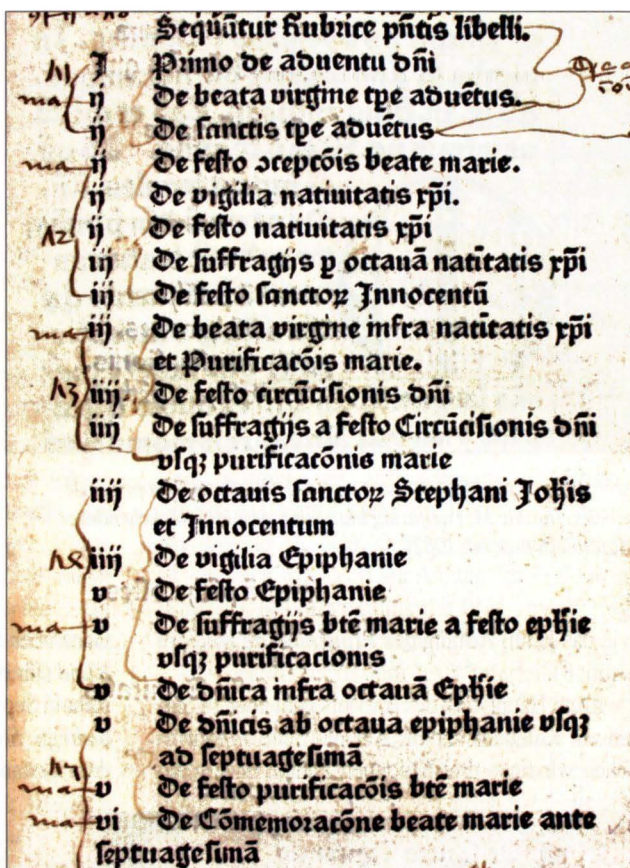 Sequūtur Rubrice pn̄tis libelli.
I Primo de aduentu dn̄i
ij De beata virgine tp̄e aduētus.
ij De sanctis tp̄e aduētus
ij De festo ↄcepcōis beate marie.
ij De vigilia natiuitatis xp̄i.
ij De festo natiuitatis xp̄i
iij De suffragijs ꝑ octauā natītatis xp̄i
iij De festo sanctoꝝ Innocentū
iij De beata virgine infra natītatis xp̄i
et Purificacōis marie.
iiij De festo circūcisionis dn̄i
iiij De suffragijs a festo Circūcisionis dn̄i
vsqꝫ purificacōnis marie
iiij De octauis sanctoꝝ Stephani Joh̄is
et Innocentum
iiij De vigilia Epiphanie
v De festo Epiphanie
v De suffragijs btē marie a festo eph̄ie
vsqꝫ purificacionis
v De dn̄ica infra octauā Eph̄ie
v De dn̄icis ab octaua epiphanie vsqꝫ
ad septuagesimā
v De festo purificacōis btē marie
vi De Cōmemoracōne beate marie ante
septuagesimā